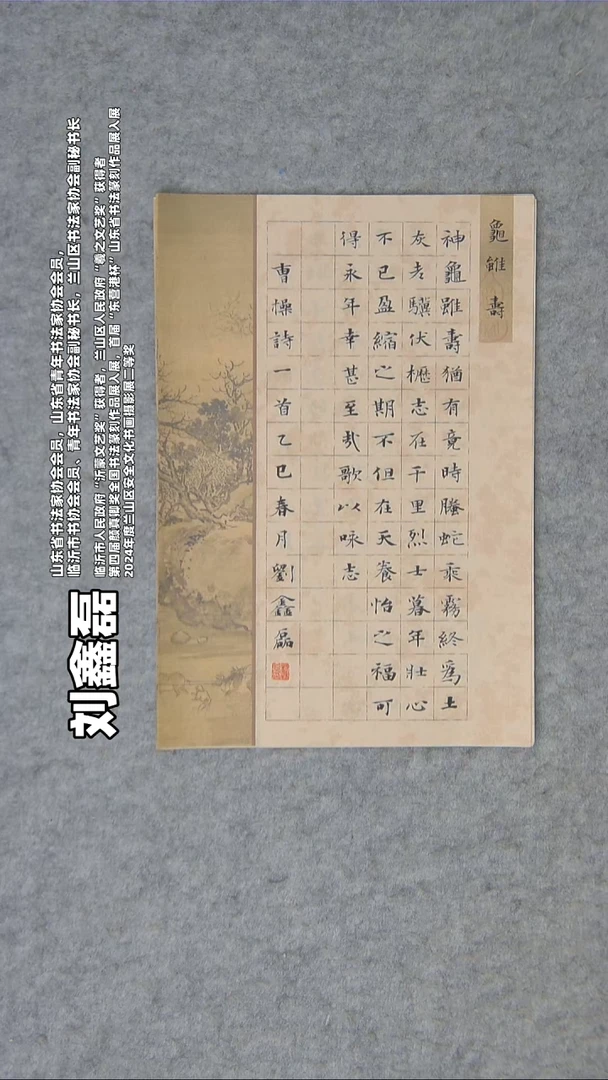 刘鑫磊
山东省书法家协会会员，山东省青年书法家协会会员，
临沂市书协会员、青年书法家协会副秘书长，兰山区书法家协会副秘书长
临沂市人民政府“沂蒙文艺奖”获得者，兰山区人民政府“羲之文艺奖”获得者
第四届颜真卿奖全国书法篆刻作品展入展，首届“东营港杯”山东省书法篆刻作品展入展
2024年度兰山区安全文化书画摄影展二等奖
龜雖壽
神龜雖壽猶有竟時騰蛇乘霧終爲土
灰老驥伏櫪志在千里烈士暮年壯心
不已盈縮之期不但在天養怡之福可
得永年幸甚至哉歌以咏志
曹操詩一首乙巳春月劉鑫磊